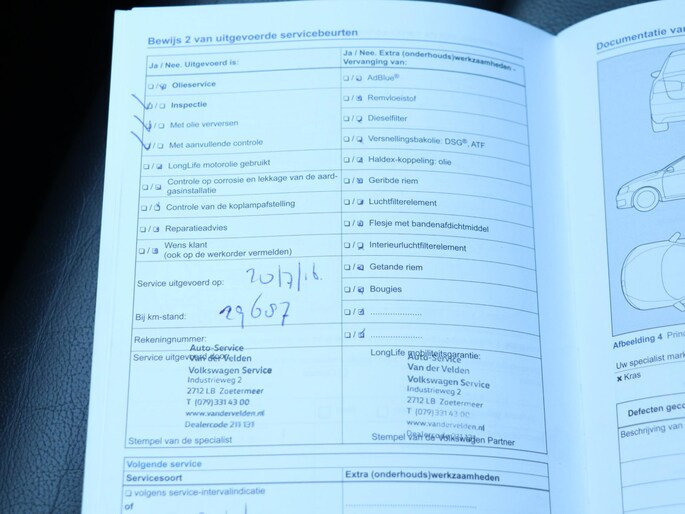 Bewijs 2 van uitgevoerde servicebeurten
Ja / Nee. Uitgevoerd is:
☐ / ☐ Olieservice
☐ / ☐ Inspectie
☐ / ☐ Met olie verversen
☐ / ☐ Met aanvullende controle
☐ / ☐ LongLife motorolie gebruikt
☐ / ☐ Controle op corrosie en lekkage van de aard-
gasinstallatie
☐ / ☐ Controle van de koplampafstelling
☐ / ☐ Reparatieadvies
☐ / ☐ Wens klant
(ook op de werkorder vermelden)
Service uitgevoerd op: 20/7/16.
Bij km-stand: 29687
Rekeningnummer:
Service uitgevoerd door:
Auto-Service
Van der Velden
Volkswagen Service
Industrieweg 2
2712 LB Zoetermeer
T (079) 331 43 00
www.vandervelden.nl
Dealercode
Stempel van de specialist
Ja / Nee. Extra (onderhouds)werkzaamheden -
Vervanging van:
☐ / ☐ AdBlue®
☐ / ☐ Remvloeistof
☐ / ☐ Dieselfilter
☐ / ☐ Versnellingsbakolie: DSG®, ATF
☐ / ☐ Haldex-koppeling: olie
☐ / ☐ Geribde riem
☐ / ☐ Luchtfilterelement
☐ / ☐ Flesje met bandenafdichtmiddel
☐ / ☐ Interieurluchtfilterelement
☐ / ☐ Getande riem
☐ / ☐ Bougies
☐ / ☐ ......................
☐ / ☐ ......................
LongLife mobiliteitsgarantie:
Auto-Service
Van der Velden
Volkswagen Service
Industrieweg 2
2712 LB Zoetermeer
T (079) 331 43 00
www.vandervelden.nl
Stempel van de Volkswagen Partner
Volgende service
Servicesoort
Extra (onderhouds)werkzaamheden
☐ volgens service-intervalindicatie
of
Documentatie va
Afbeelding 4 Princ
Uw specialist mark
x Kras
Defecten geco
Beschrijving van